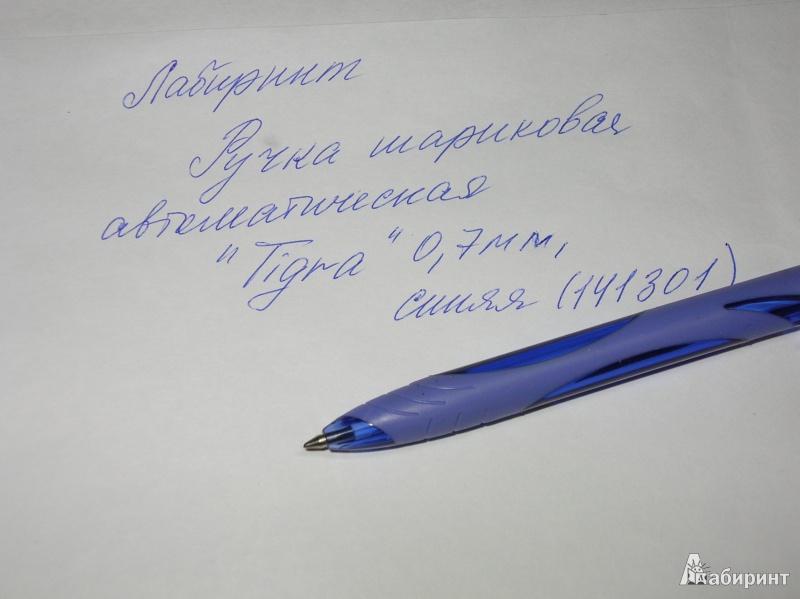 Лабиринт
Ручка шариковая
автоматическая
"Tigra" 0,7мм,
синяя (141301)
Лабиринт